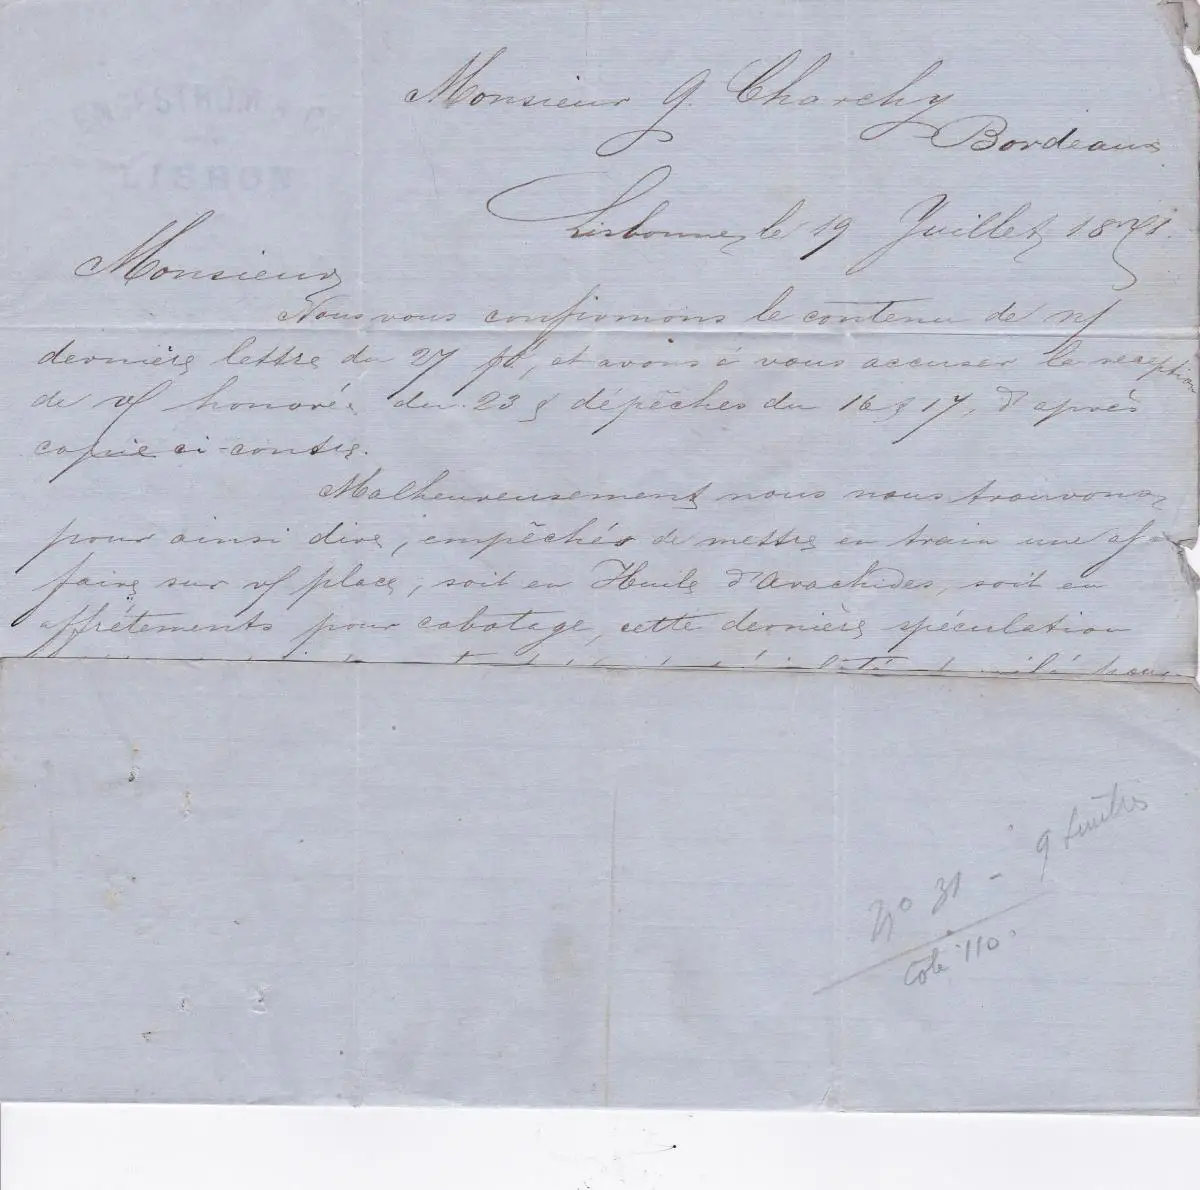 LISBON
Monsieur G. Charchy
Bordeaux
Lisbonne, le 19 Juillet 1871.
Monsieur
Nous vous confirmons le contenu de n/
dernière lettre du 27 po, et avons à vous accuser la reception
de v/ honorée du 23 & dépêches du 16 & 17, d'après
copie ci-contre.
Malheureusement nous nous trouvons,
pour ainsi dire, empêchés de mettre en train une af-
faire sur v/ place, soit en Huile d'Arachides, soit en
affrétements pour cabotage, cette dernière spéculation
No 31 - 9
Cote 110